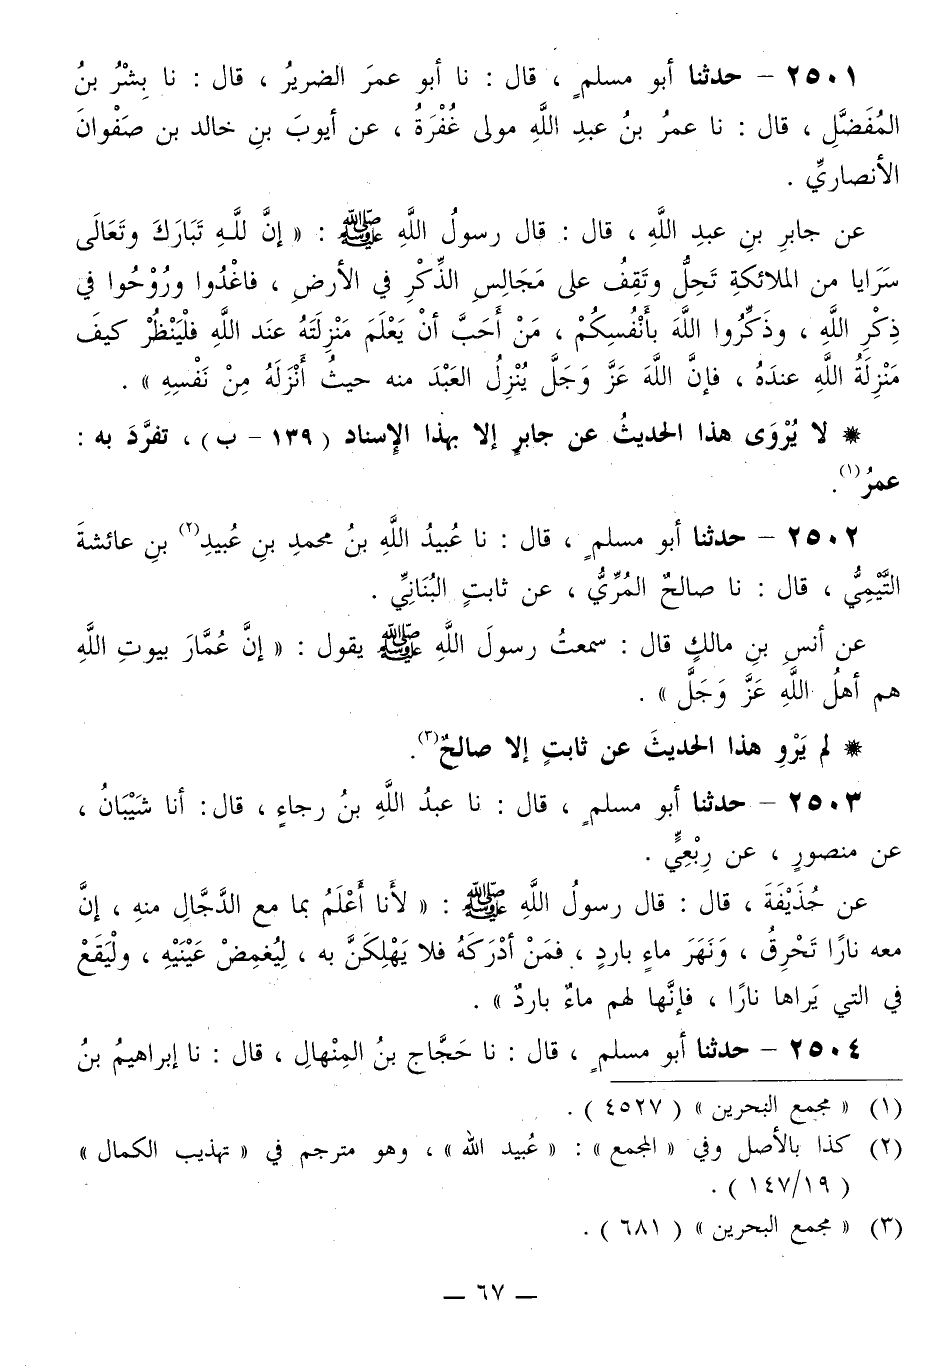 ٢٥٠١ – حدثنا أبو مسلمٍ ، قال : نا أبو عمرَ الضريرُ ، قال : نا بِشْرُ بنُ
المُفَضَّلِ ، قال : نا عمرُ بنُ عبدِ اللَّهِ مولى غُفْرَةُ ، عن أيوبَ بنِ خالد بن صَفْوانَ
الأنصاريِّ .
عن جابرِ بنِ عبدِ اللَّهِ ، قال : قال رسولُ اللَّهِ ﷺ : « إنَّ للَّـهِ تَبَارَكَ وتَعَالَى
سَرَايا من الملائكةِ تَحِلُّ وتَقِفُ على مَجَالِسِ الذِّكْرِ في الأرضِ ، فاغْدُوا ورُوْحُوا في
ذِكْرِ اللَّهِ ، وذَكِّرُوا اللَّهَ بأَنْفُسِكُمْ ، مَنْ أَحَبَّ أنْ يَعْلَمَ مَنْزِلَتَهُ عنَد اللَّهِ فلْيَنْظُرْ كيفَ
مَنْزِلَةُ اللَّهِ عندَهُ ، فإنَّ اللَّهَ عَزَّ وَجَلَّ يُنْزِلُ العَبْدَ منه حيثُ أَنْزَلَهُ مِنْ نَفْسِهِ » .
❋ لا يُرْوَى هذا الحديثُ عن جابرٍ إلا بهذا الإِسناد ( ١٣٩ – ب ) ، تفرَّدَ به :
عمرُ(١).
٢٥٠٢ – حدثنا أبو مسلمٍ ، قال : نا عُبيدُ اللَّهِ بنُ محمدِ بنِ عُبيدِ(٢) بنِ عائشةَ
التَّيْمِيُّ ، قال : نا صالحٌ المُرِّيُّ ، عن ثابتٍ البُنَانِيِّ .
عن أنسِ بنِ مالكٍ قال : سمعتُ رسولَ اللَّهِ ﷺ يقول : « إنَّ عُمَّارَ بيوتِ اللَّهِ
هم أهلُ اللَّهِ عَزَّ وَجَلَّ » .
❋ لم يَرْوِ هذا الحديثَ عن ثابتٍ إلا صالحٌ(٣).
٢٥٠٣ – حدثنا أبو مسلمٍ ، قال : نا عبدُ اللَّهِ بنُ رجاءٍ ، قال: أنا شَيْبَانُ ،
عن منصورٍ ، عن رِبْعِيٍّ .
عن حُذَيْفَةَ ، قال : قال رسولُ اللَّهِ ﷺ : « لأَنا أَعْلَمُ بما مع الدَّجَّالِ منهِ ، إنَّ
معه نارًا تَحْرِقُ ، وَنَهَرَ ماءٍ باردٍ ، فمَنْ أدْرَكَهُ فلا يَهْلِكَنَّ به ، لِيُغمِضْ عَيْنَيْهِ ، ولْيَقَعْ
في التي يَراها نارًا ، فإنَّها لهم ماءٌ باردٌ » .
٢٥٠٤ – حدثنا أبو مسلمٍ ، قال : نا حَجَّاج بنُ المِنْهالِ ، قال : نا إبراهيمُ بنُ
(١) « مجمع البحرين » ( ٤٥٢٧ ) .
(٢) كذا بالأصل وفي « المجمع » : « عُبيد الله » ، وهو مترجم في « تهذيب الكمال »
( ١٤٧/١٩ ) .
(٣) « مجمع البحرين » ( ٦٨١ ) .
— ٦٧ —